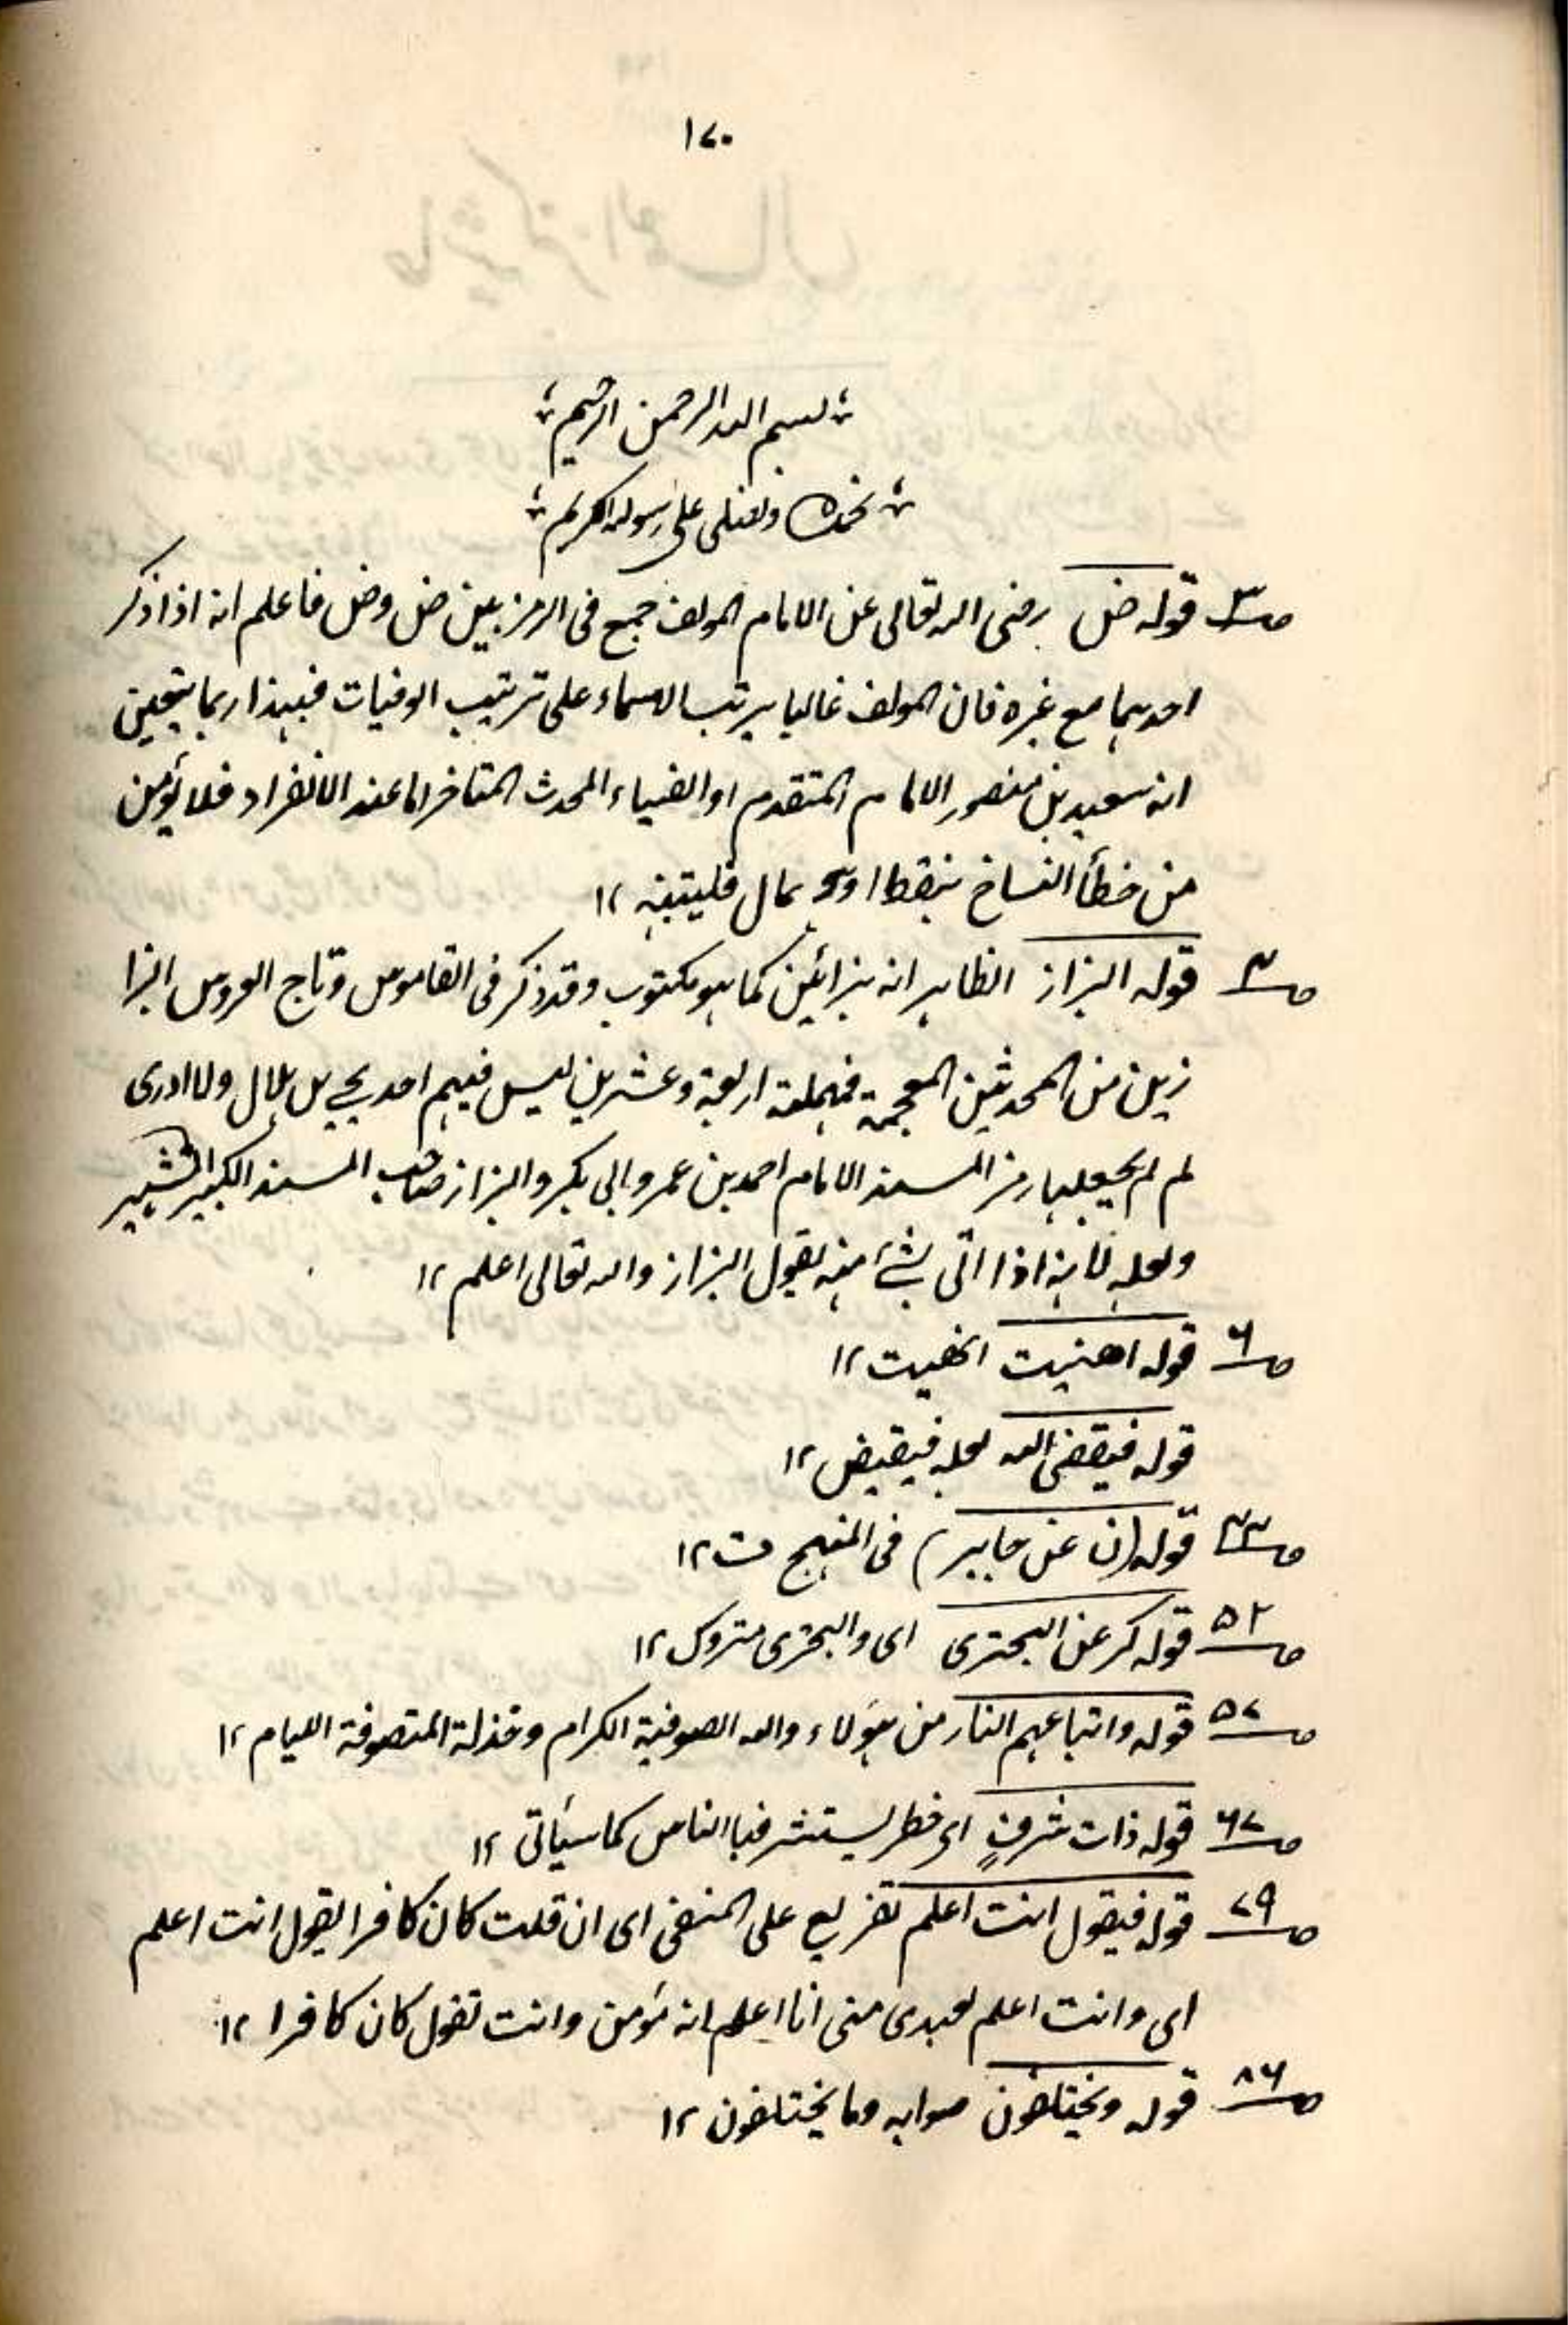 ۱۷۰
بسم الله الرحمن الرحيم
نحمده ونصلى على رسوله الكريم
ص۳ قوله ض رضى الله تعالى عن الامام المولف جمع فى الرمز بين ص وض فاعلم انه اذا ذكر
احدهما مع غيره فان المولف غالبا يرتب الاسماء على ترتيب الوفيات فبهذا ربما يتعين
انه سعيد بن منصور الامام المتقدم او الضياء المحدث المتاخر اما عند الانفراد فلا يؤمن
من خطأ النساخ بنقط او اهمال فليتنبه ۱۲
ص۳ قوله البزاز الظاهر انه بزائين كما هو مكتوب وقد ذكر فى القاموس وتاج العروس البزا
زين من المحدثين المعجمة فمهملة اربعة وعشرين ليس فيهم احد ولا ادرى
لم لم يجعلها رمز المسند الامام احمد بن عمرو ابى بكر والبزاز صاحب المسند الكبير الشهير
ولعله لانه اذا اتى بشئ منه يقول البزاز والله تعالى اعلم ۱۲
ص۶ قوله اهنيت انهيت ۱۲
قوله فيقضى الله لعله فيقيض ۱۲
ص۳۳ قوله (ن عن جابر) فى المنهج ت ۱۲
ص۵۲ قوله كر عن البحترى اى والبحترى متروك ۱۲
ص۵۷ قوله واتباعهم النار من هؤلاء والله الصوفية الكرام وخذلة المتصوفة الليام ۱۲
ص۶۷ قوله ذات شرف اى خطر يستشرفها الناس كما سيأتى ۱۲
ص۷۹ قوله فيقول انت اعلم تفريع على المنفى اى ان قلت كان كافرا يقول انت اعلم
اى وانت اعلم لعبدى منى انا اعلم انه مؤمن وانت تقول كان كافرا ۱۲
ص۸۶ قوله ويختلفون صوابه وما يختلفون ۱۲